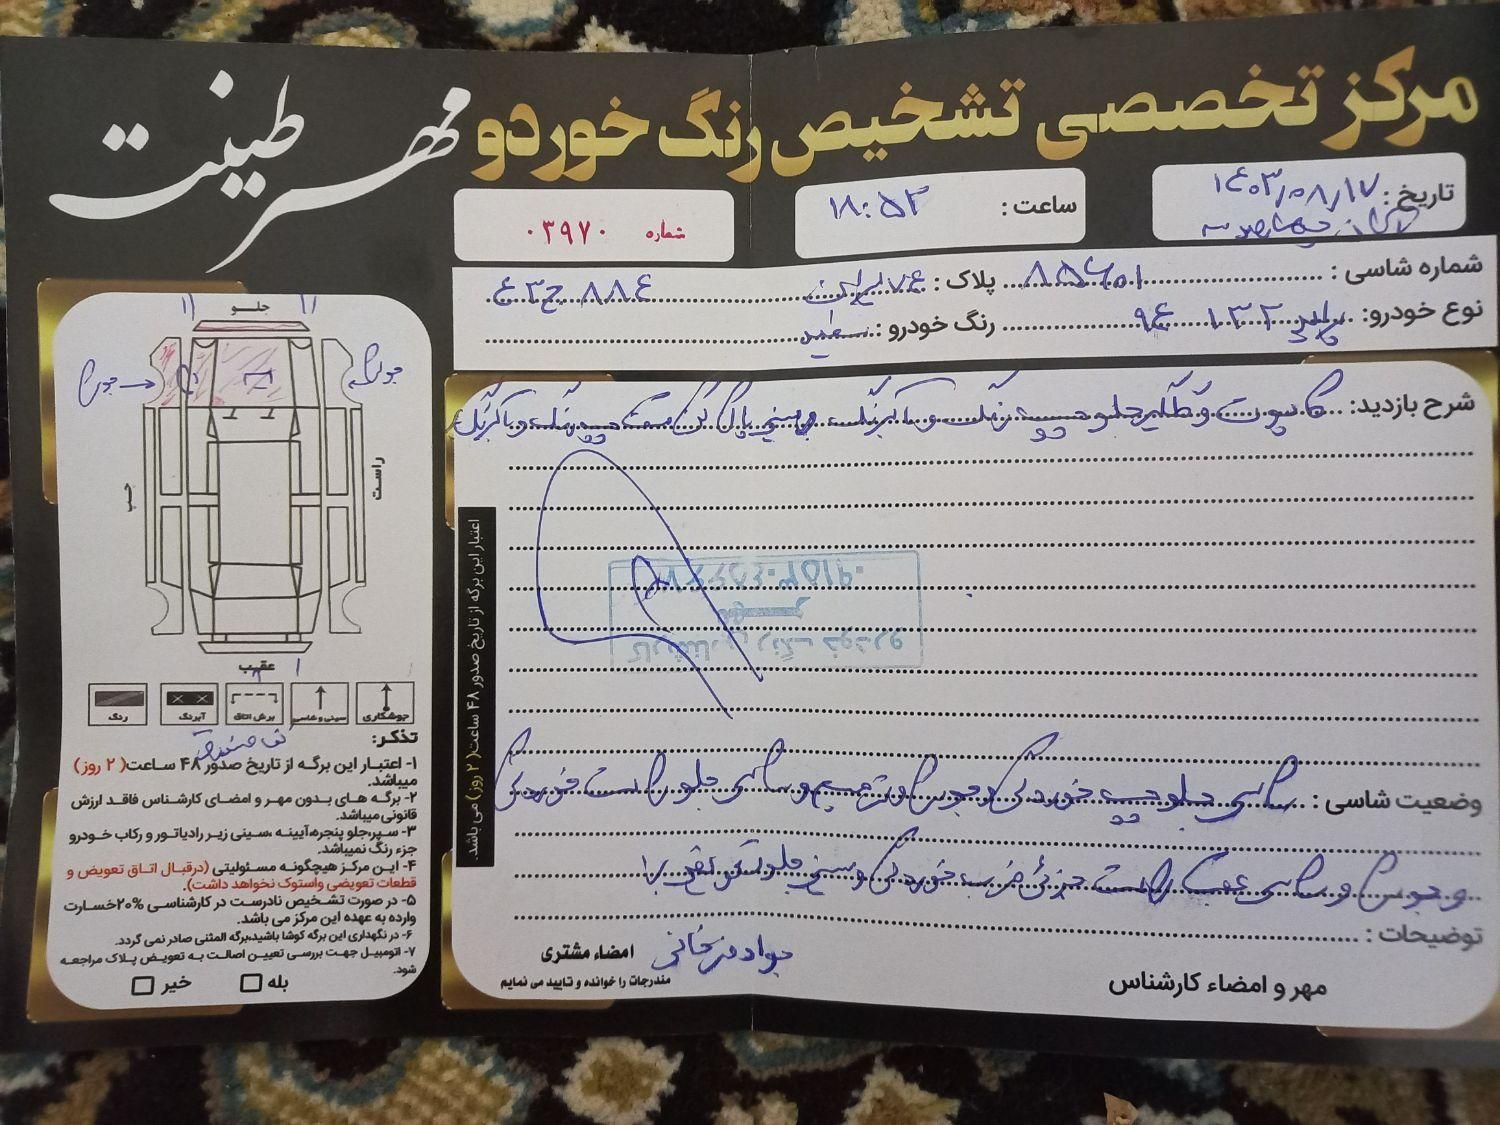 مرکز تخصصی تشخیص رنگ خوردو
مهر طینت
تاریخ : ۱۴۰۳/۰۸/۱۷
ساعت : ۱۸:۵۳
شماره ۰۳۹۷۰
شماره شاسی : پلاک : ایران ۸۸۴
نوع خودرو: ۱۳۲ رنگ خودرو : سفید
شرح بازدید: کاپوت و گلگیر جلو چپ رنگ و
جلو
جوش
جوش
راست
چپ
عقب
جوشکاری
سینی و شاسی
برش اتاق
آبرنگ
رنگ
کف صندوق
تذکر:
۱- اعتبار این برگه از تاریخ صدور ۴۸ ساعت( ۲ روز) میباشد.
۲- برگه های بدون مهر و امضای کارشناس فاقد ارزش قانونی میباشد.
۳- سپر،جلو پنجره،آیینه ،سینی زیر رادیاتور و رکاب خودرو جزء رنگ نمیباشد.
۴- این مرکز هیچگونه مسئولیتی (درقبال اتاق تعویض و قطعات تعویضی واستوک نخواهد داشت).
۵- در صورت تشخیص نادرست در کارشناسی ۲۰%خسارت وارده به عهده این مرکز می باشد.
۶- در نگهداری این برگه کوشا باشید،برگه المثنی صادر نمی گردد.
۷- اتومبیل جهت بررسی تعیین اصالت به تعویض پلاک مراجعه شود.
بله خیر
اعتبار این برگه از تاریخ صدور ۴۸ ساعت( ۲ روز) می باشد.
کارشناس رنگ خودرو
وضعیت شاسی : شاسی جلو چپ خوردگی و جوش و ترمیم و شاسی جلو راست خوردگی
و جوش و شاسی عقب راست جزئی ضرب خوردگی و سینی جلو
توضیحات :
مهر و امضاء کارشناس
امضاء مشتری
مندرجات را خوانده و تایید می نمایم